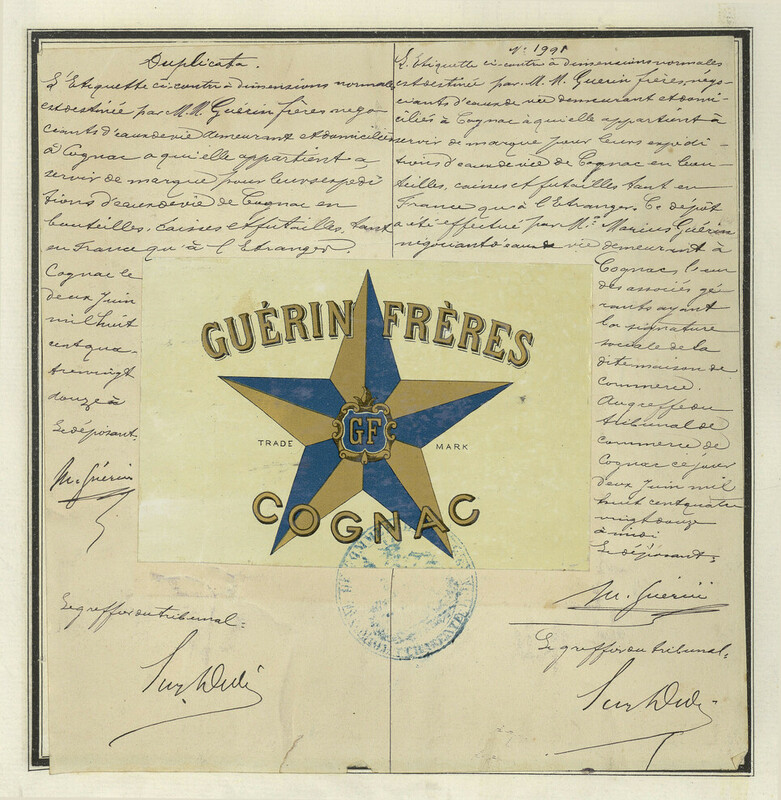 Duplicata.
L'Etiquette ci-contre à dimensions normales
est destinée par M.M. Guérin frères, négo-
ciants d'eaux de vie demeurant et domiciliés
à Cognac a qui elle appartient a
servir de marque pour leurs expédi
tions d'eaux de vie de Cognac en
bouteilles, caisses et futailles, tant
en France qu'à l'Etranger.
Cognac le
deux Juin
mil huit
cent qua-
trevingt
douze à
Le déposant.
M. Guérin
Le greffier du tribunal =
N° 1991
L'Etiquette ci-contre à dimensions normales
est destinée par M.M. Guérin frères, négo-
ciants d'eaux de vie demeurant et domi-
ciliés à Cognac à qui elle appartient à
servir de marque pour leurs expédi-
tions d'eaux de vie de Cognac en bou-
teilles, caisses et futailles tant en
France qu'à l'Etranger. Ce dépôt
a été effectué par Mr. Marius Guérin
négociant d'eaux de vie demeurant à
Cognac, l'un
des associés gé-
rants ayant
la signature
sociale de la
dite maison de
commerce.
Au greffe du
tribunal de
commerce de
Cognac ce jour
deux Juin mil
huit cent quatre
vingt douze
à midi
Le déposant =
M. Guérin
Le greffier du tribunal =
GUÉRIN FRÈRES
GF
TRADE MARK
COGNAC